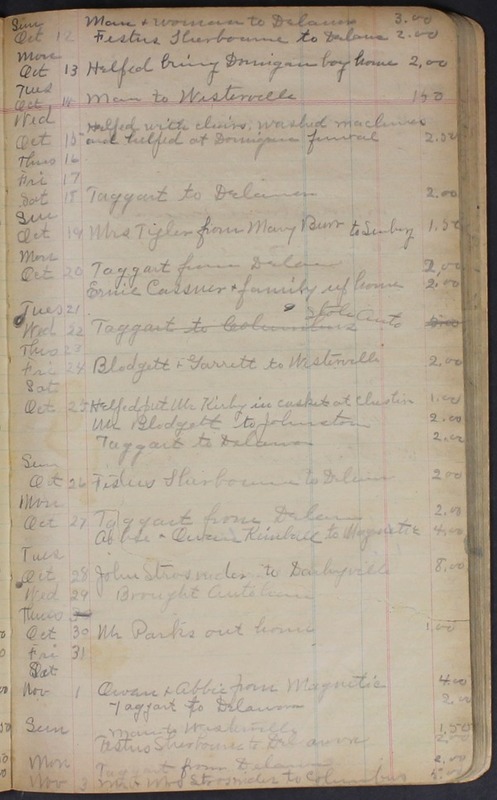 Sun Man & woman to Delawar 3.00
Oct 12 Festus Sherbourne to Delawar 2.00
Mon
Oct 13 Helped bring Donigan boy home 2,00
Tues
Oct 14 Man to Westerville 150
Wed Helped with chairs, washed machine
Oct 15 and helped at Donigan funeral 2.50
Thus 16
Fri 17
Sat 18 Taggart to Delawar 2.00
Sun
Oct 19 Mrs Tigler from Mary Burr to Sunbury 1.50
Mon
Oct 20 Taggart from Delawar 2,00
Ernie Cassner & family up home 2.00
Tues 21
Wed 22 Taggart to Columbus Stole Auto 5.00
Thus 23
Fri 24 Blodgett & Garrett to Westerville 2.00
Sat
Oct 25 Helped put Mr Kirby in casket at 1.00
Mr Blodgett to Johnston 2.00
Taggart to Delawar 2.00
Sun
Oct 26 Festus Sherbourne to Delawar 2.00
Mon
Oct 27 Taggart from Delawar 2.00
Abbie & Owan Kimball to Magnetic 4.00
Tues
Oct 28 John Strosnider to Darbyville 8.00
Wed 29 Brought Auto
Thurs 30
Oct 30 Mr Parks out home 1.00
Fri 31
Sat
Nov 1 Owan & Abbie from Magnetic 4.00
Taggart to Delawar 2.00
Sun Man to Westerville 1.50
Festus Sherbourne to Delawar 2.00
Mon Taggart from Delawar 2.00
Nov 3 Mr & Mrs Strosnider to Columbus 5.00